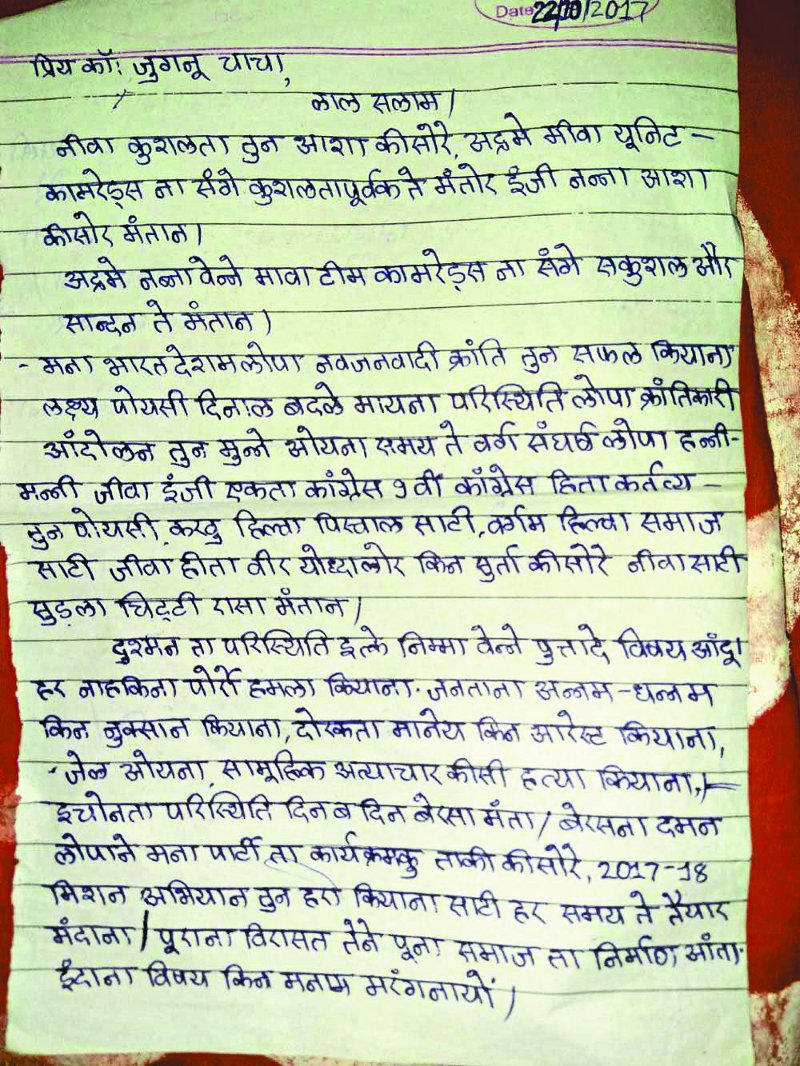 Date 22/10/2017
प्रिय कॉ: जुगनू चाचा,
लाल सलाम।
नीवा कुशलता तुन आशा कीसोरे, अद्रमे मीवा यूनिट -
कामरेड्स ना संगे कुशलतापूर्वक ते मंतोर इंजी नन्ना आशा
कीसोर मंतान।
अद्रमे नन्ना वेन्ने मावा टीम कामरेड्स ना संगे सकुशल और
सान्दन ते मंतान।
- मना भारत देशम लोपा नवजनवादी क्रांति तुन सफल कियाना
लक्ष्य पोयसी दिनाल बदले मायना परिस्थिति लोपा क्रांतिकारी
आंदोलन तुन मुन्ने ओयना समय ते वर्ग संघर्ष लोपा हन्नी-
मन्नी जीवा इंजी एकता कांग्रेस 9 वीं कांग्रेस हिता कर्तव्य -
तुन पोयसी, करवु हिल्वा पिस्वाल साटी, वर्गम हिल्वा समाज
साटी जीवा हीता वीर योध्दालोर किन सुर्ता कीसोरे नीवा साटी
सुड़ला चिट्टी रासा मंतान।
दुश्मन ता परिस्थिति इत्के निम्मा वेन्ने पुत्तादे विषय आंदू।
हर नाहकिना पोर्रो हमला कियाना. जनताना अन्नम - धन्नम
किन नुक्सान कियाना, दोरकता मानेय किन आरेस्ट कियाना,
जेल ओयना, सामूहिक अत्याचार कीसी हत्या कियाना,
इचोनता परिस्थिति दिन ब दिन बेरसा मंता। बेरसना दमन
लोपाने मना पार्टी ता कार्यक्रमकु ताकी कीसोरे, 2017-18
मिशन अभियान तुन हरा कियाना साटी हर समय ते तैयार
मंदाना। पूराना विरासत तेने पूना समाज ता निर्माण आंता.
इंदाना विषय किन मनाम मरंगनायों।